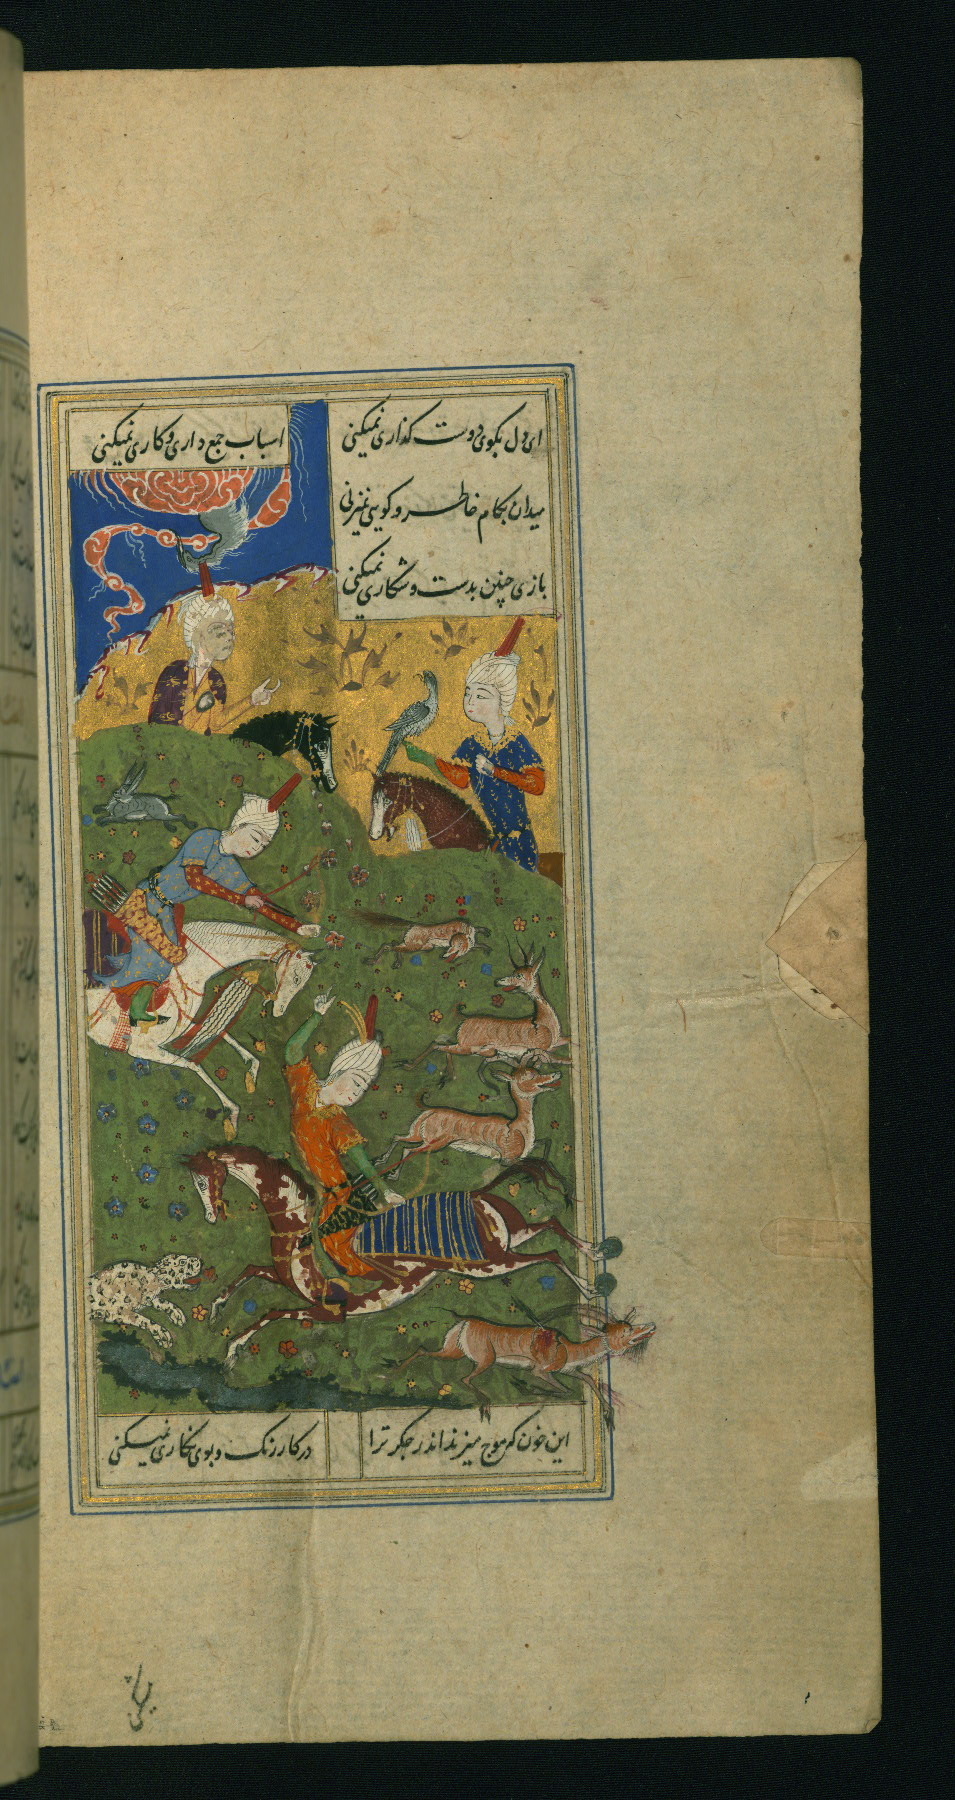 ای دل بکوی دوست کذاری نمیکنی
اسباب جمع داری و کاری نمیکنی
میدان بکام خاطر و کویی نمیزنی
بازی چنین بدست و شکاری نمیکنی
این خون که موج میزند اندر جکر ترا
در کار رنک و بوی نکاری نمیکنی